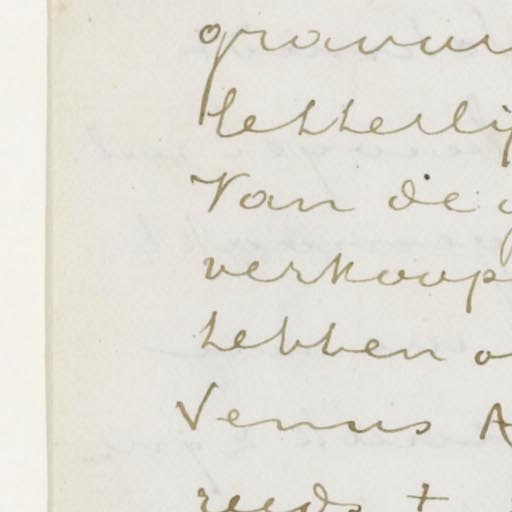 gravur
letterlij
Van de g
verkoop
hebben o
Venus A
reeds +